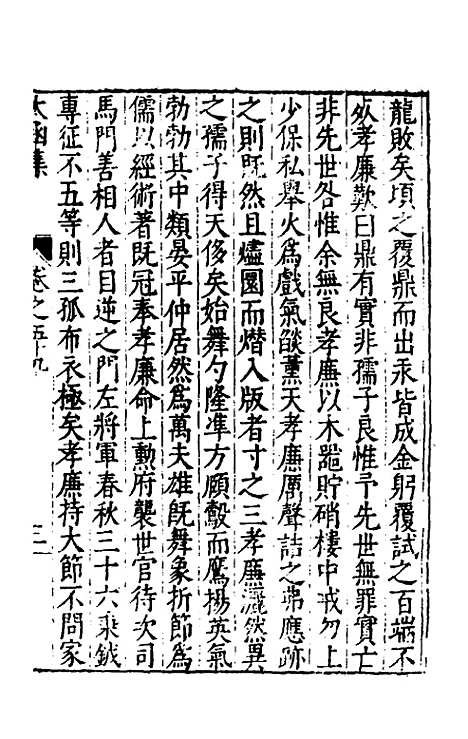 龍敗矣頃之覆鼎而出汞皆成金躬覆試之百端不
效孝廉歎曰鼎有實非孺子良惟予先世無罪實亡
非先世咎惟余無良孝廉以木罌貯硝樓中戒勿上
少保私舉火為戲氣燄薰天孝廉厲聲詰之弟應跡
之則既然且燼園而熸入版者寸之三孝廉灑然異
之孺子得天侈矣始舞勺隆準方頤鷇而鷹揚英氣
勃勃其中類晏平仲居然為萬夫雄既舞象折節為
儒以經術著既冠奉孝廉命上勳府襲世官待次司
馬門善相人者目逆之門左將軍春秋三十六秉鉞
專征不五等則三孤布衣極矣孝廉持大節不問家
太函集
卷之五十九
三